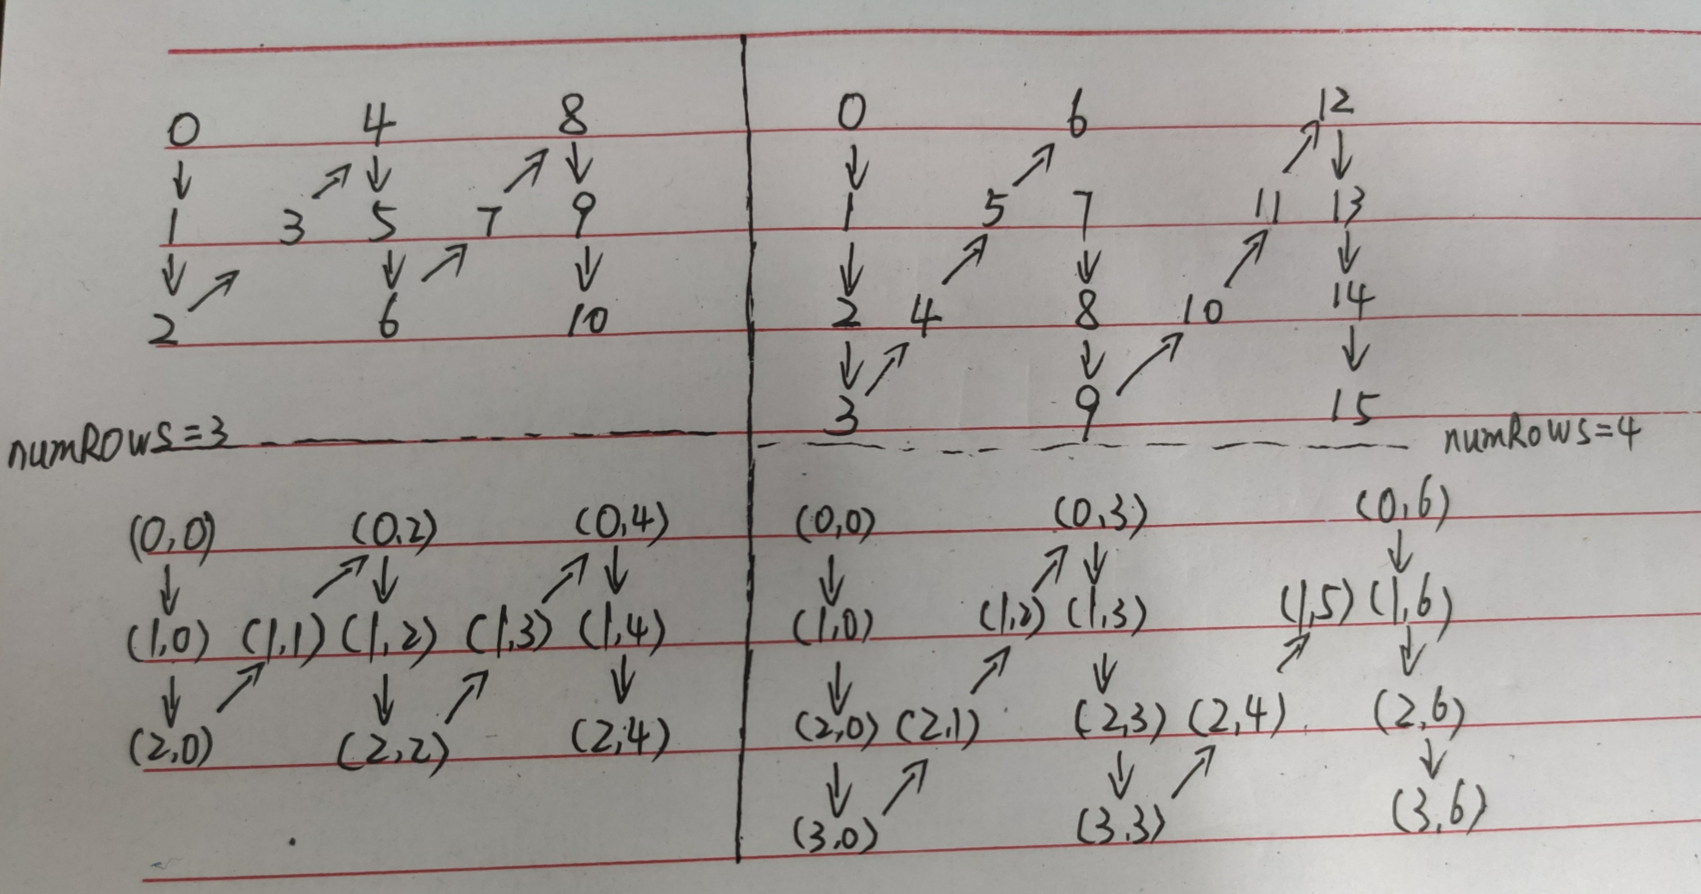 0 4 8
1 3 5 7 9
2 6 10
numRows=3
0 6 12
1 5 7 11 13
2 4 8 10 14
3 9 15
numRows=4
(0,0) (0,2) (0,4)
(1,0) (1,1) (1,2) (1,3) (1,4)
(2,0) (2,2) (2,4)
(0,0) (0,3) (0,6)
(1,0) (1,2) (1,3) (1,5) (1,6)
(2,0) (2,1) (2,3) (2,4) (2,6)
(3,0) (3,3) (3,6)